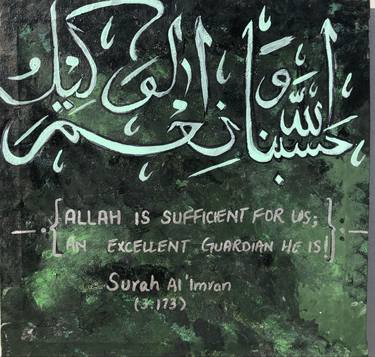 حسبنا الله و نعم الوكيل
{ALLAH IS SUFFICIENT FOR US;
AN EXCELLENT GUARDIAN HE IS!}
Surah Al'Imran
(3:173)